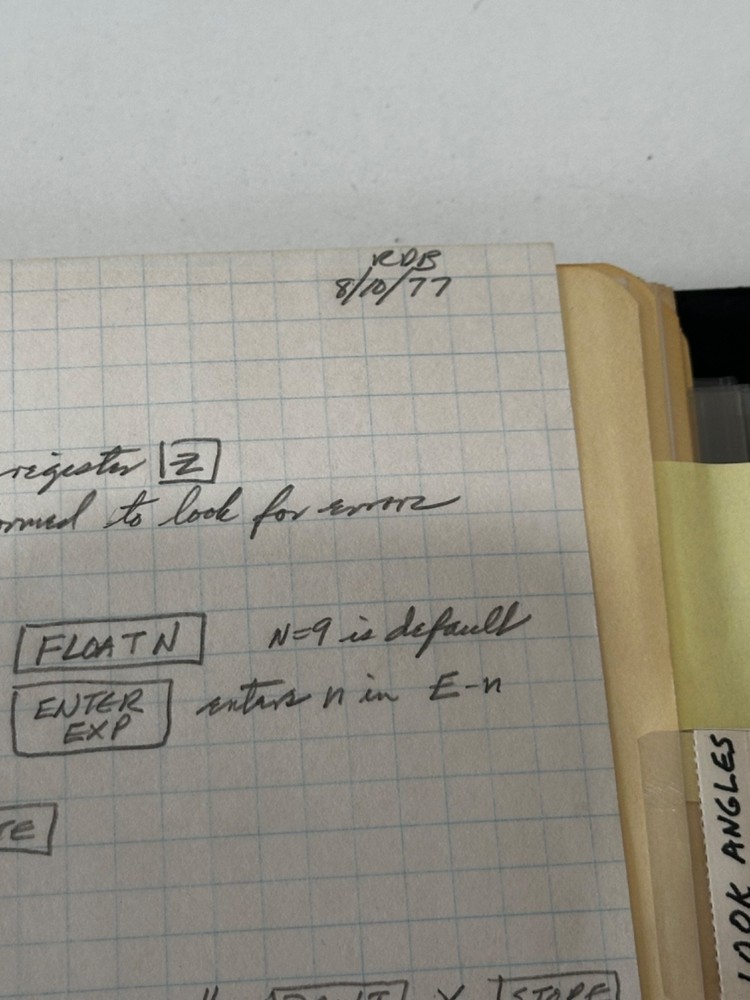 RDB
8/10/77
register Z
ormed to look for errors
FLOAT N N=9 is default
ENTER EXP enters n in E-n
TE
" PRINT X STORE
LOOK ANGLES